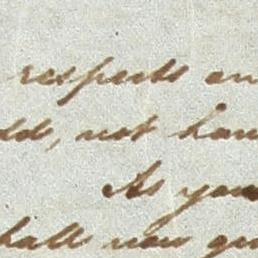 respects an
ld, not hav
As you
hall now gi